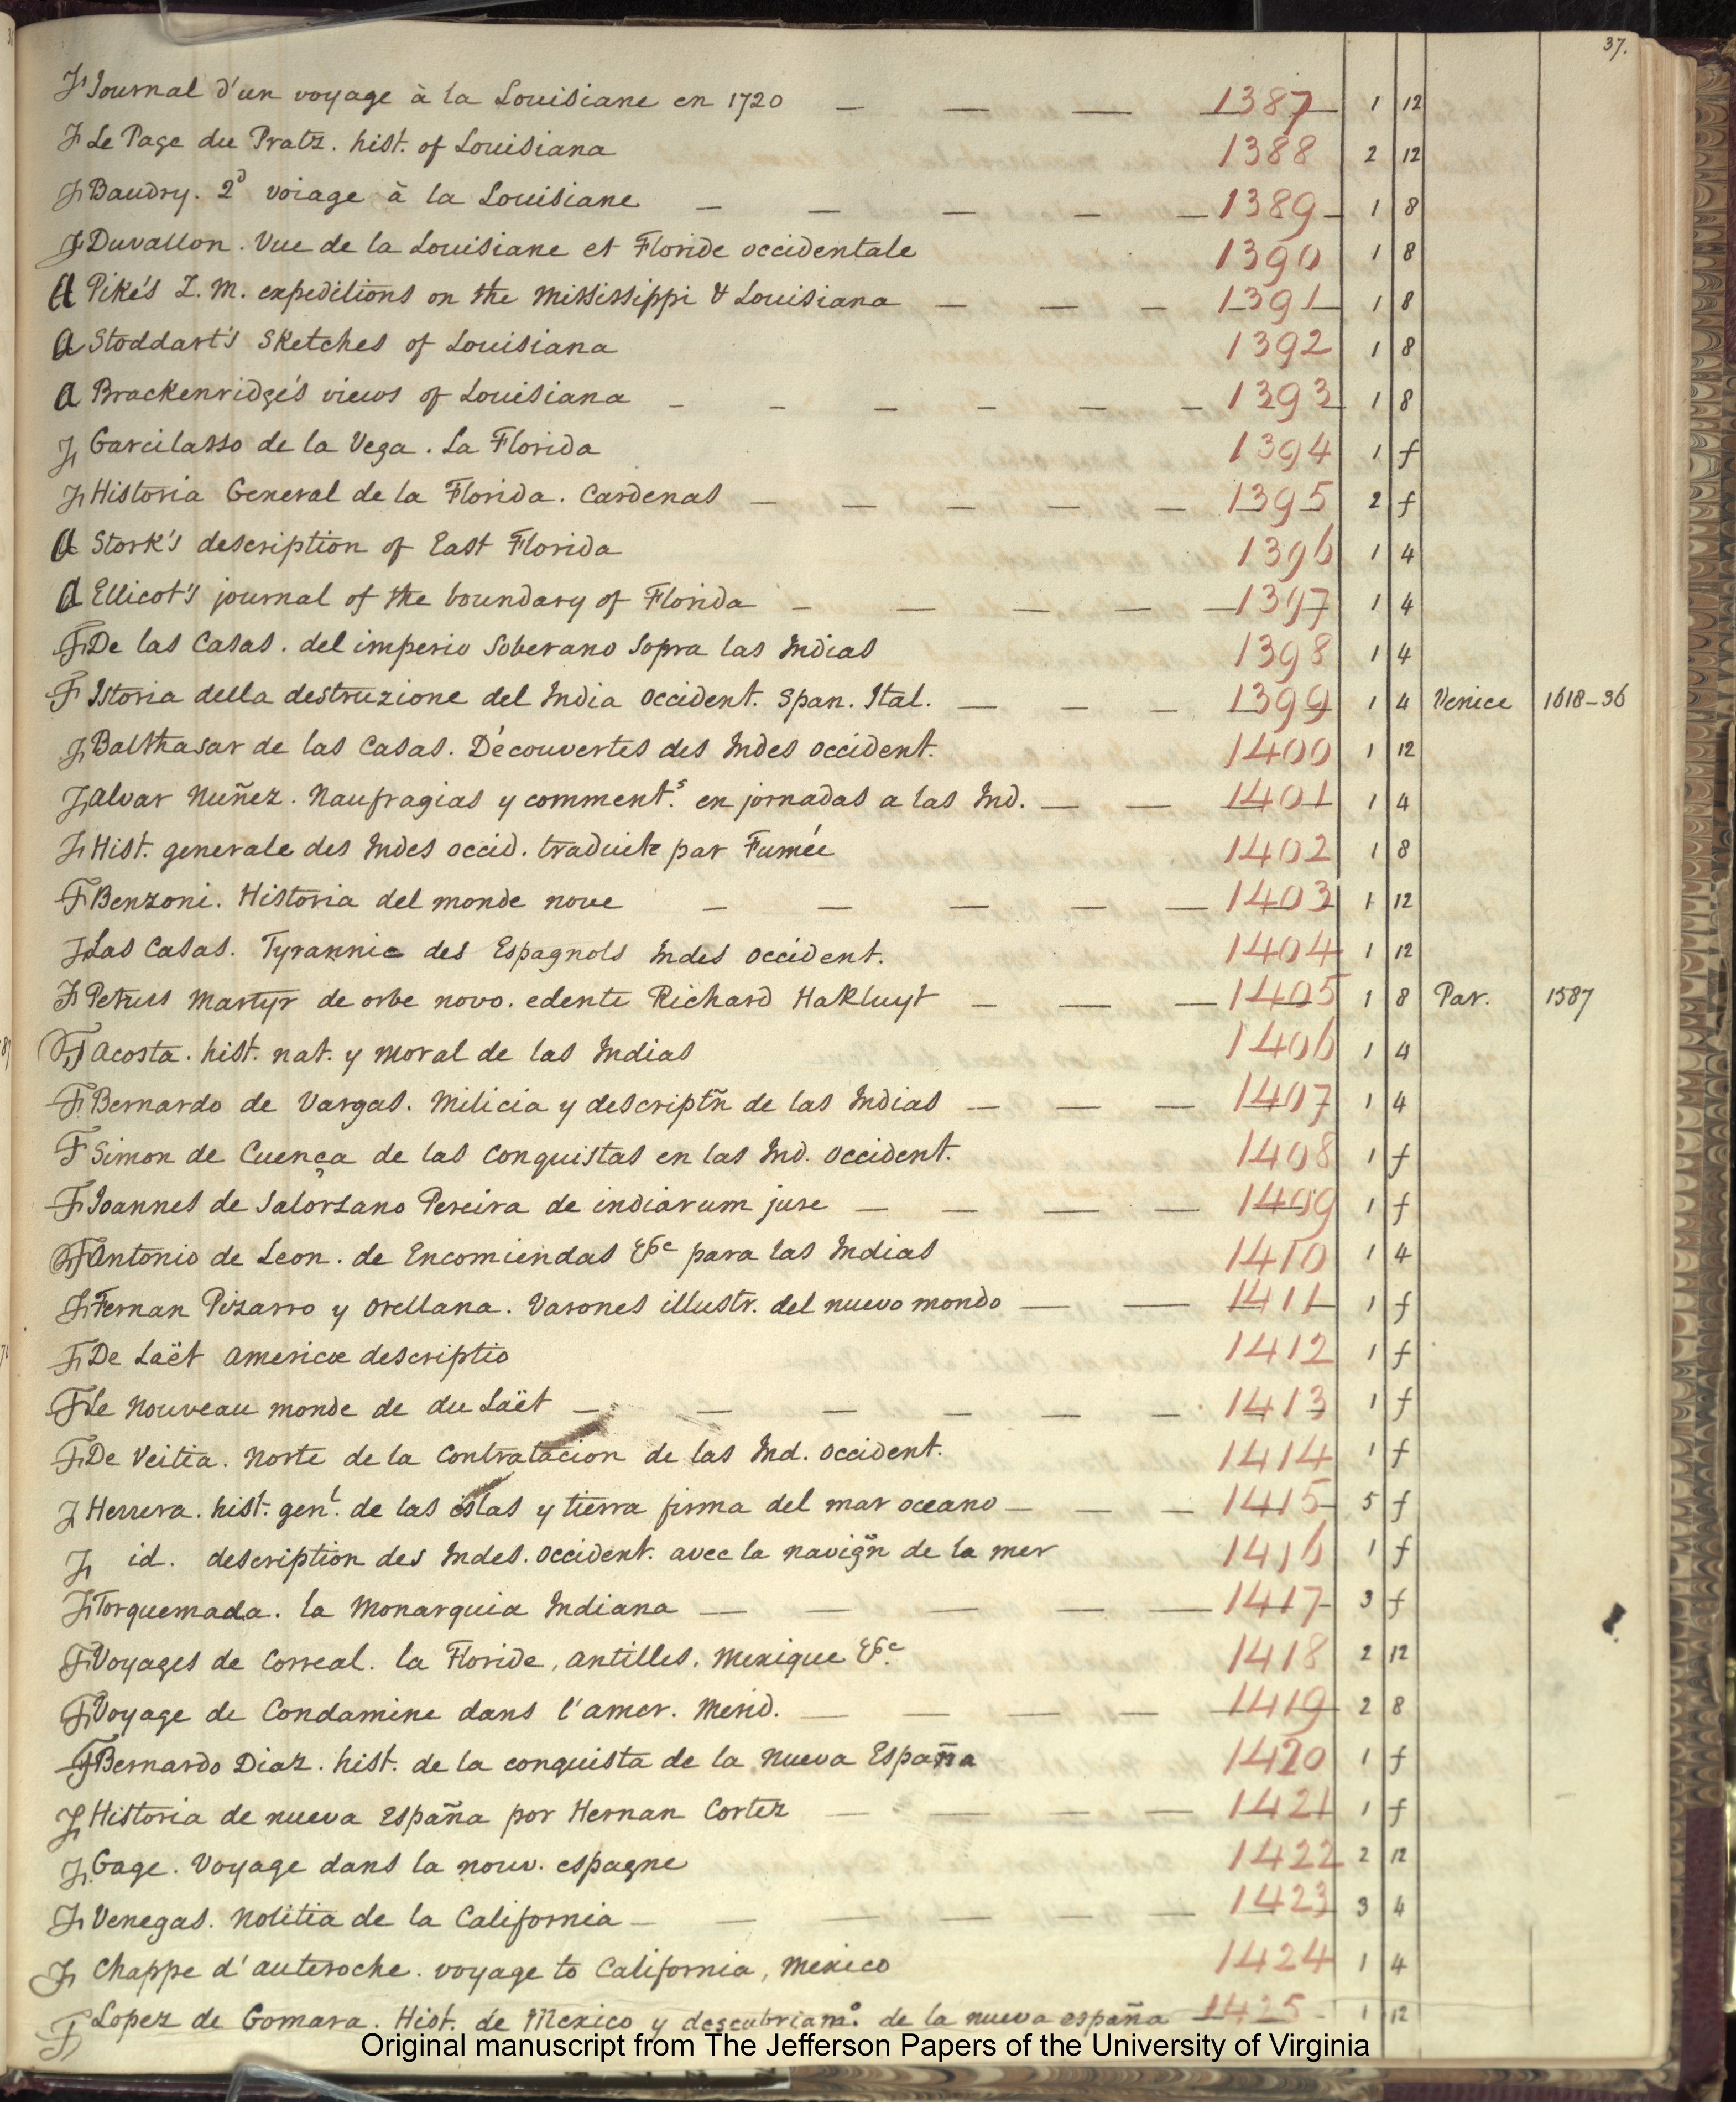 37.
F Journal d'un voyage à la Louisiane en 1720 — — — 1387 1 12
F Le Page du Pratz. hist. of Louisiana 1388 2 12
F Baudry. 2d voiage à la Louisiane — — — — — 1389 1 8
F Duvallon. Vue de la Louisiane et Floride occidentale 1390 1 8
a Pike's Z. M. expeditions on the Mississippi & Louisiana — — — 1391 1 8
a Stoddart's Sketches of Louisiana 1392 1 8
a Brackenridge's views of Louisiana - - - - - - 1393 1 8
F Garcilasso de la Vega. La Florida 1394 1 f
F Historia General de la Florida. Cardenas — — — — — 1395 2 f
a Stork's description of East Florida 1396 1 4
a Ellicot's journal of the boundary of Florida — — — — — 1397 1 4
F De las Casas. del imperio soberano sopra las Indias 1398 1 4
F Istoria della destruzione del India occident. Span. Ital. — — — 1399 1 4 Venice 1618-36
F Balthasar de las Casas. Découvertes des Indes occident. 1400 1 12
F Alvar Nuñez. Naufragias y comment.s en jornadas a las Ind. — — 1401 1 4
F Hist. generale des Indes occid. traduite par Fumée 1402 1 8
F Benzoni. Historia del monde nove — — — — — 1403 1 12
F Las Casas. Tyrannie des Espagnols Indes occident. 1404 1 12
F Petrus Martyr de orbe novo. edente Richard Hakluyt — — — 1405 1 8 Par. 1587
F Acosta. hist. nat. y moral de las Indias 1406 1 4
F Bernardo de Vargas. Milicia y descriptñ de las Indias — — — 1407 1 4
F Simon de Cuença de las Conquistas en las Ind. occident. 1408 1 f
F Joannes de Salorzano Pereira de indiarum jure — — — — 1409 1 f
F Antonio de Leon. de Encomiendas &c para las Indias 1410 1 4
F Fernan Pizarro y Orellana. Varones illustr. del nuevo mondo — — 1411 1 f
F De Laët Americæ descriptio 1412 1 f
F Le Nouveau monde de du Laët — — — — — — 1413 1 f
F De Veitia. Norte de la Contratacion de las Ind. occident. 1414 1 f
F Herrera. hist. gen.l de las islas y tierra firma del mar oceano — — — 1415 5 f
F id. description des Indes. occident. avec la navigñ de la mer 1416 1 f
F Torquemada. la Monarquia Indiana — — — — — 1417 3 f
F Voyages de Correal. la Floride, Antilles, Mexique &c. 1418 2 12
F Voyage de Condamine dans l'Amer. Merid. — — — — 1419 2 8
F Bernardo Diaz. hist. de la conquista de la Nueva España 1420 1 f
F Historia de nueva España por Hernan Cortez — — — — 1421 1 f
F Gage. Voyage dans la nouv. espagne 1422 2 12
F Venegas. Notitia de la California — — — — — — 1423 3 4
F Chappe d'auteroche. voyage to California, Mexico 1424 1 4
F Lopez de Gomara. Hist. de Mexico y descubriam.o de la nueva españa 1425 1 12
Original manuscript from The Jefferson Papers of the University of Virginia